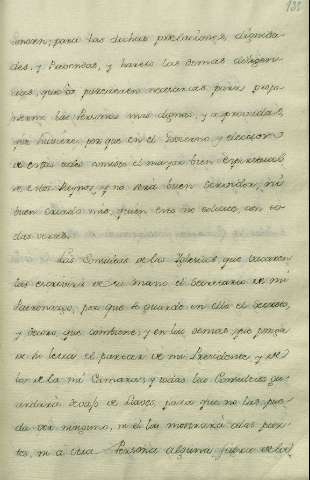 132
honrren; para las dichas prelaciones, dignida-
des, y Prebendas, y hareis las demas diligen-
cias, que os parecieren necesarias para propo-
nerme las Personas mas dignas, y aprovadas,
que huviere; porque en el Govierno, y eleccion
de estas cosas consiste el mayor bien espiritual
de estos Reynos, y no será buen servidor, ni
buen criado mio, quien esto no
das veras.
Las Consultas de las Iglesias, que vacaren
las escrivirá de su mano el Secretario de mi
Patronazgo, por que se guarde en ello el secreto,
y decoro que combiene; y en las demas, que ponga
de su letra el parecer de mi Presidente, y de
los de la mi Camara; y todas las Consultas gu-
ardará debajo de llave, para que no las pue-
da ver ninguno, ni él las mostrará á las par-
tes, ni á otra Persona alguna, fuera de los